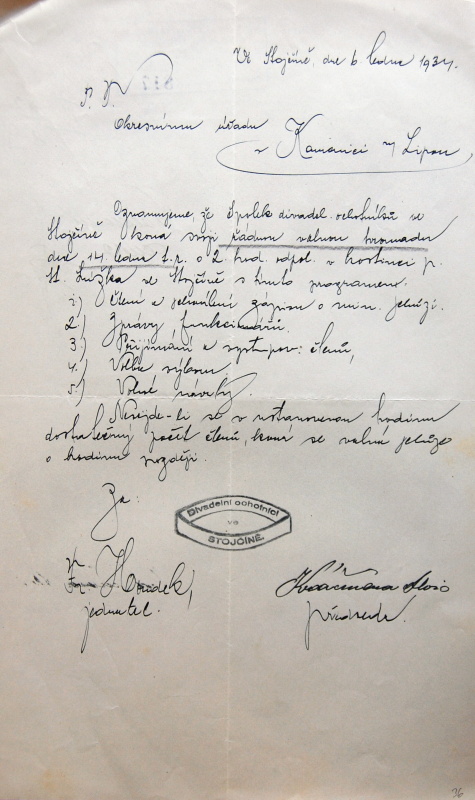 Ve Stojčíně, dne 6 ledna 1934.
P. T.
Okresnímu úřadu
v Kamenici n/ Lipou
Oznamujeme, že Spolek divadel. ochotníků ve
Stojčíně koná svoji řádnou valnou hromadu
dne 14 ledna t.r. o 2 hod. odpol. v hostinci p.
ve Stojčíně s tímto programem.
1.) Čtení a schválení zápisu o min. schůzi.
2.) Zprávy funkcionářů.
3.) Přijímání a vystupov. členů,
4.) Volba výboru.
5.) Volné návrhy.
Nesejde-li se v ustanovenou hodinu
dostatečný počet členů, koná se valná schůze
o hodinu později.
Za:
Divadelní ochotníci
ve
STOJČÍNĚ.
Fr. Houdek,
jednatel.
předseda.
36